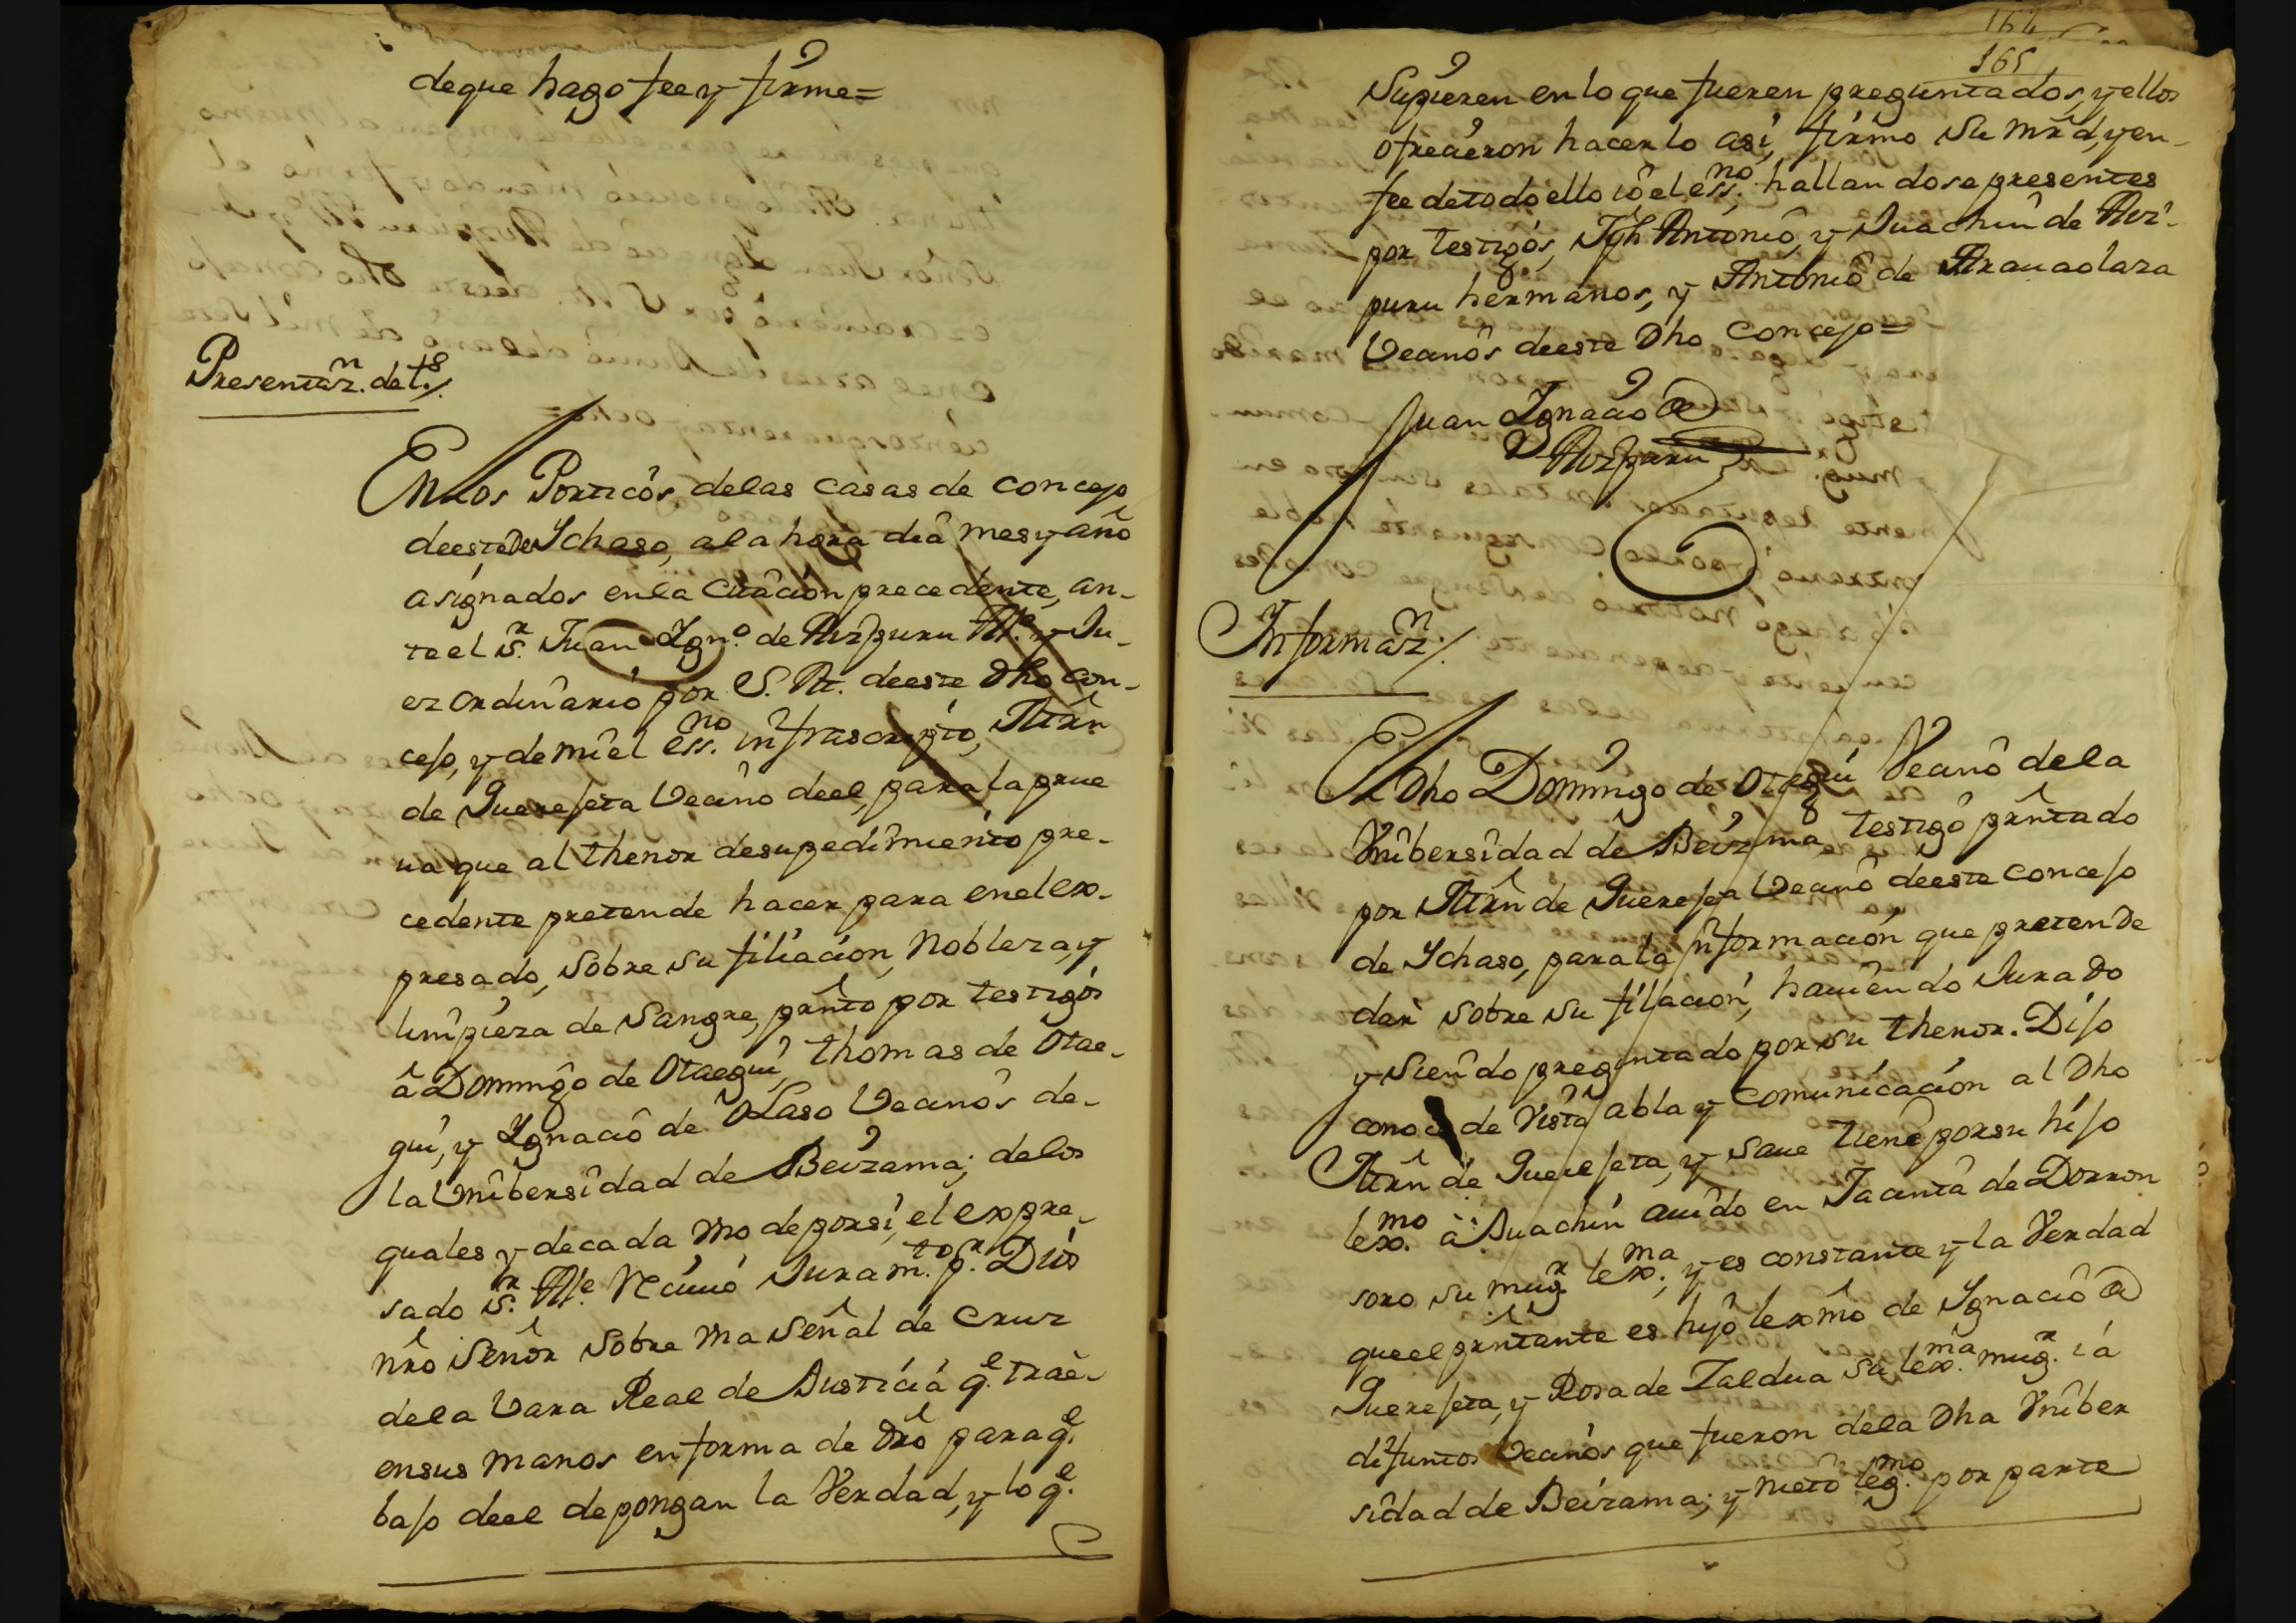 deque hago fee y firme=
Presentaz.n de t.s/.
En los Porticos delas casas de concejo
deeste de Ychaso, ala hora dia mes y año
asignados enla Citacion precedente, an-
te el S.r Juan Ign.o de Aizpuru Al.e y Ju-
ez ordinario por S. M. deeste dho con-
cejo, y de mi el ess.no infrascripto, Mrñ
de Guerejeta Vecino deel, para la prue
ua que al thenor desu pedimiento pre-
cedente pretende hacer para en el ex-
presado, sobre su filiacion, Nobleza, y
limpieza de Sangre, prñto por testigos
â Domingo de Otaegui, thomas de Otae-
gui, y Ygnacio de OLaso Vecinos de-
la Vnibersidad de Beizama; delos
quales y decada Vno deporsi, el expre-
sado S.r Al.e Reciuió Juram.to p.r Dios
nrô Señor sobre Vna Señal de Cruz
dela Vara Real de Justicia q.e trae-
en sus manos enforma de drô para q.e
bajo deel depongan la Verdad, y lo q.e
164
165
Supieren enlo que fueren preguntados, y ellos
ofrecieron hacerlo asi, firmo Su mrd, y en-
fee detodo ello iô el ess.no hallandose presentes
por testigos, Jph Antonio, y Juachin de Aiz-
puru hermanos, y Antonio de Arauaolaza
Vecinos deeste dho Concejo=
Juan Ygnacio de
Aizpuru
Informaz.n/.
El dho Domingo de Otaegui Vecino dela
Vnibersidad de Beizama, testigo prñtado
por Mrñ de Guerejeta Vecino deeste concejo
de Ychaso, para la Informacion que pretende
dar sobre su filacion, hauiendo Jurado
y Siendo preguntado por su thenor. Dijo
conoce de Vista abla y Comunicacion al dho
Mrñ de Guerejeta, y Saue tiene por su hijo
lex.mo â Juachin auido en Jacinta de Dorron
soro su mug.r lex.ma, y es constante y la Verdad
que el prñtante es hijo lexmô de Ygnacio de
Guerejeta, y Rosa de Zaldua su lex.ma mug.r ia
difuntos Vecinos que fueron dela dha Vniber
sidad de Beizama; y nieto leg.mo por parte